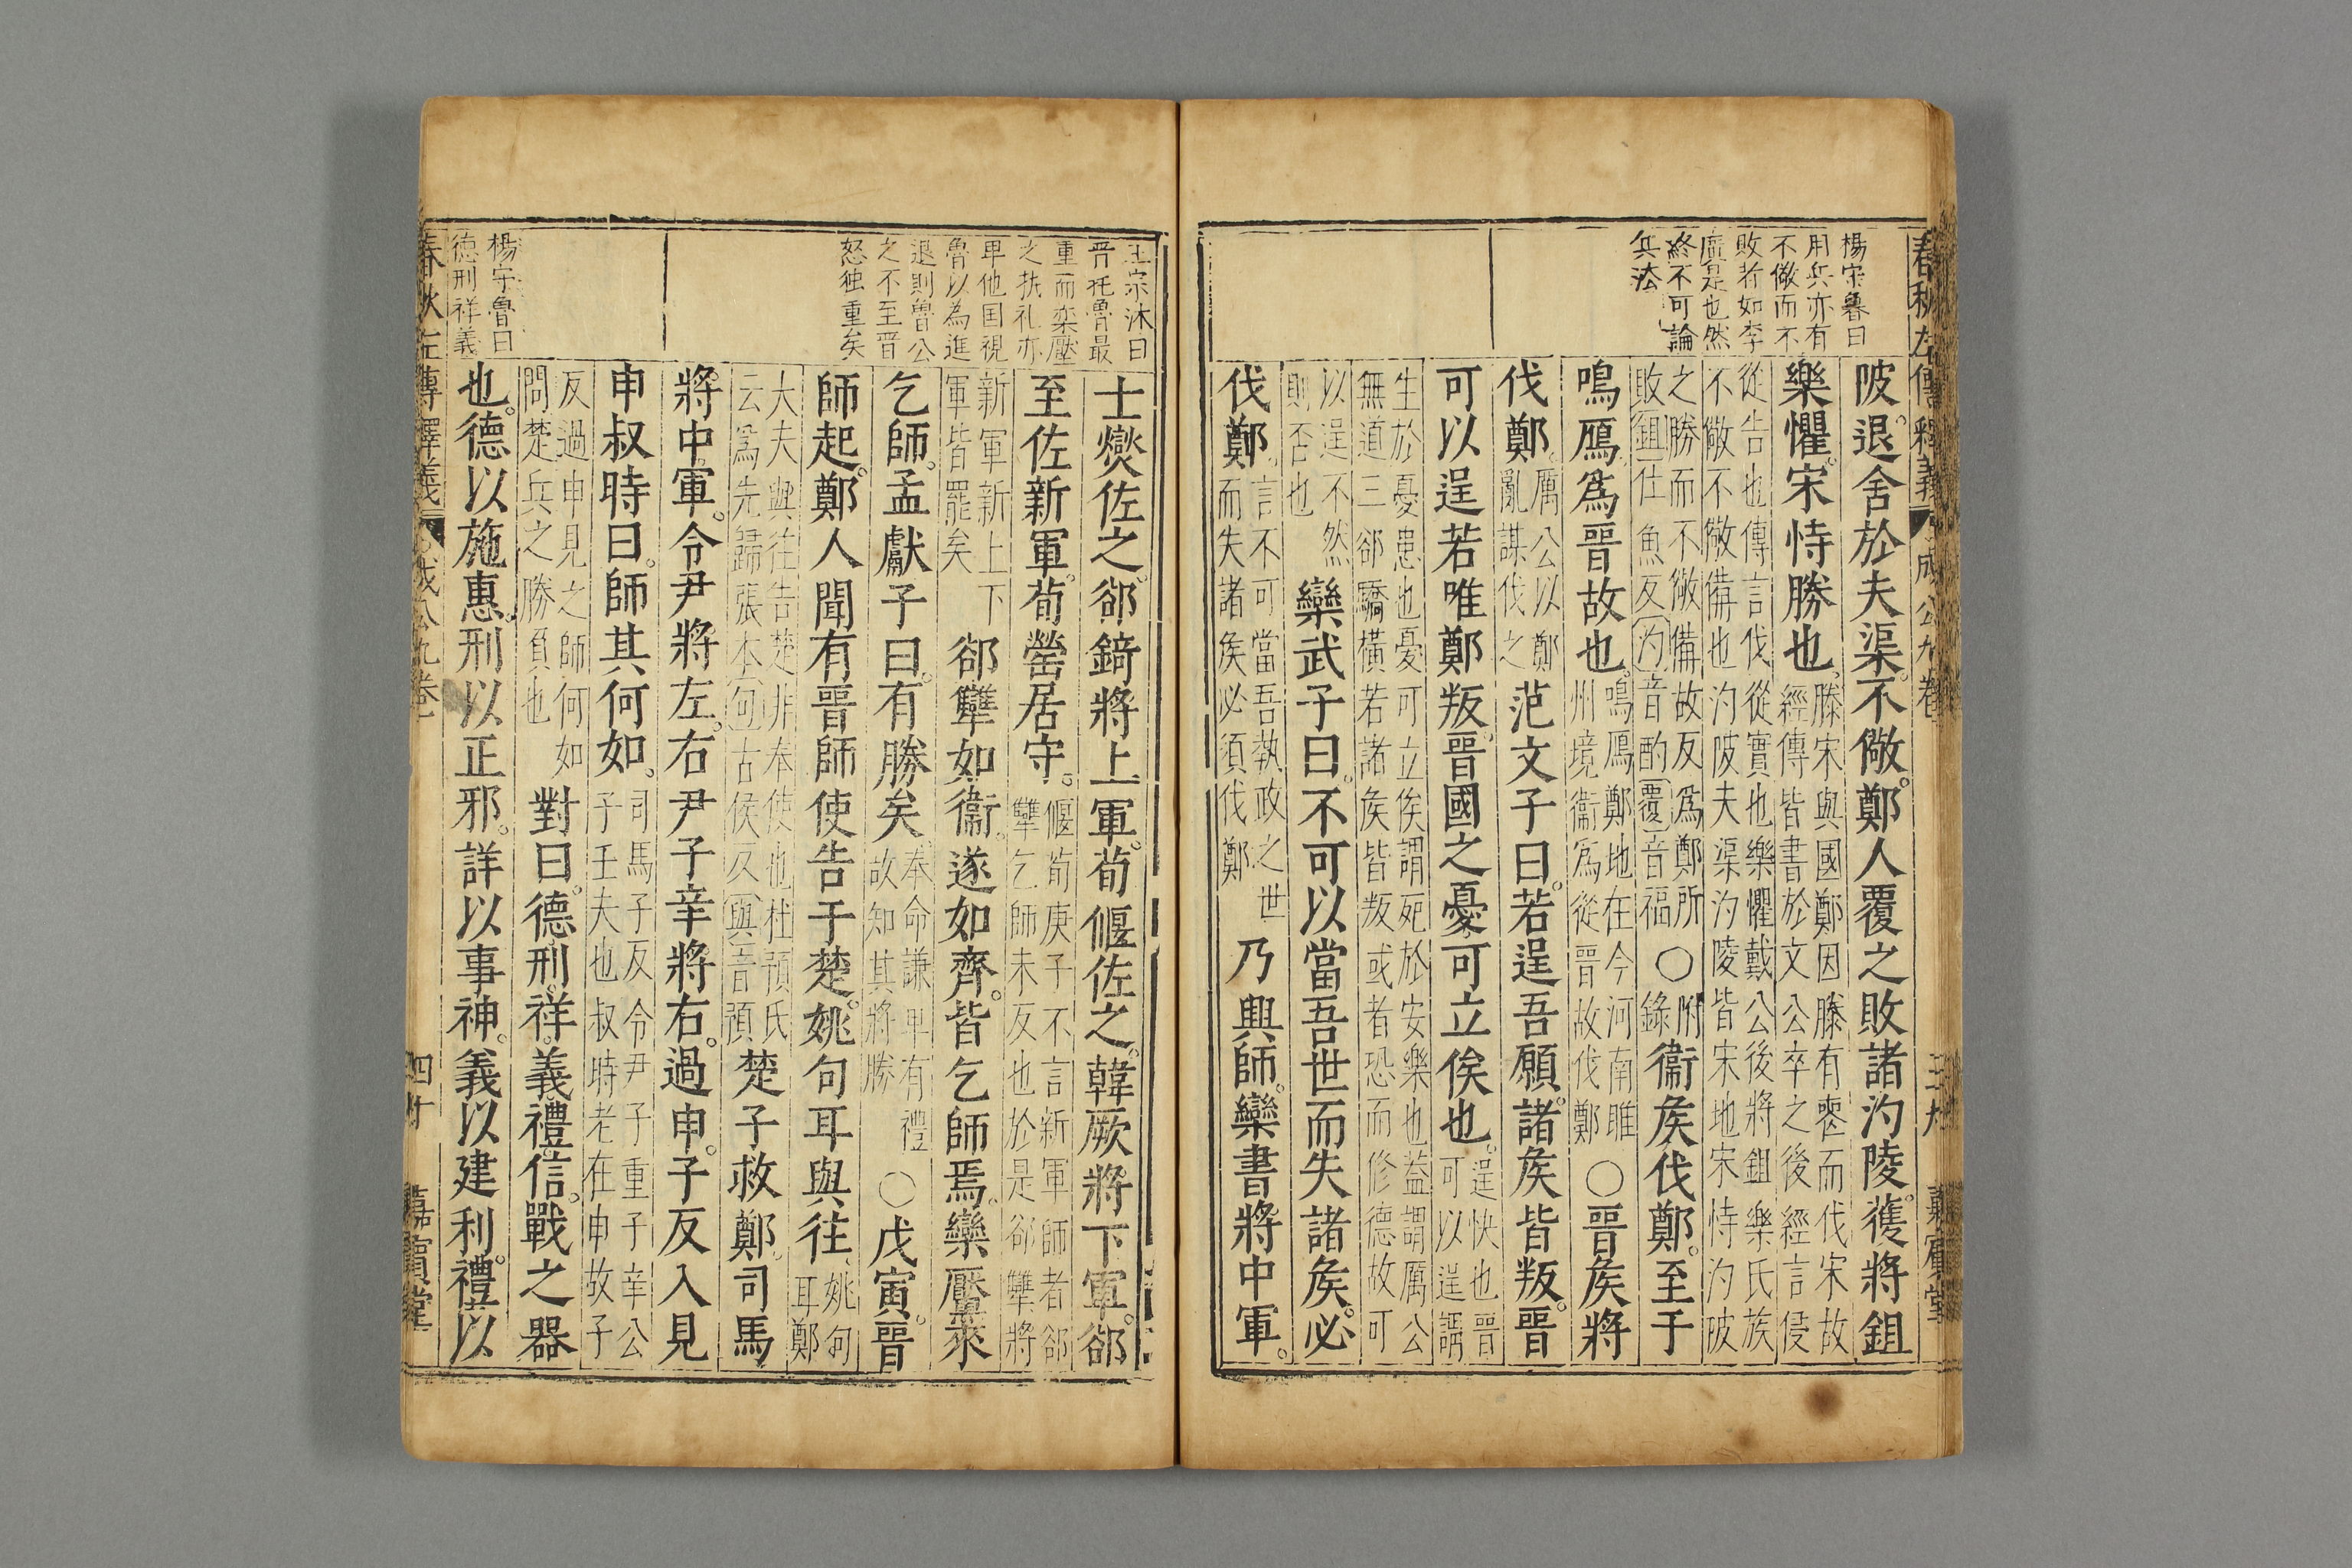 楊守魯曰
用兵亦有
不儆而不
敗者如李
廣是也然
終不可論
兵法
陂退舍於夫渠不儆鄭人覆之敗諸汋陵獲將鉏
樂懼宋恃勝也
滕宋與國鄭因滕有喪而伐宋故
經傳皆書於文公卒之後經言侵
從告也傳言伐從實也樂懼戴公後將鉏樂氏族
不儆不儆備也汋陂夫渠汋陵皆宋地宋恃汋陂
之勝而不儆備故反爲鄭所
敗鉏仕魚反汋音酌覆音福
○
附
錄
衞矦伐鄭至于
鳴鴈爲晉故也
鳴鴈鄭地在今河南睢
州境衞爲從晉故伐鄭
○晉矦將
伐鄭
厲公以鄭
亂謀伐之
范文子曰若逞吾願諸矦皆叛晉
可以逞若唯鄭叛晉國之憂可立俟也
逞快也晉
可以逞謂
生於憂患也憂可立俟謂死於安樂也蓋謂厲公
無道三郤驕橫若諸矦皆叛或者恐而修德故可
以逞不然
則否也
欒武子曰不可以當吾世而失諸矦必
伐鄭
言不可當吾執政之世
而失諸矦必須伐鄭
乃興師欒書將中軍
春秋左傳釋義 成公九卷 三十九
王宗沐曰
晉托魯最
重而栾黶
之执礼亦
卑他囯視
魯以為進
退則魯公
之不至晋
怒独重矣
士燮佐之郤錡將上軍荀偃佐之韓厥將下軍郤
至佐新軍荀罃居守
偃荀庚子不言新軍師者郤
犨乞師未反也於是郤犨將
新軍新上下
軍皆罷矣
郤犨如衞遂如齊皆乞師焉欒黶來
乞師孟獻子曰有勝矣
奉命謙卑有禮
故知其將勝
○戊寅晉
師起鄭人聞有晉師使告于楚姚句耳與往
姚句
耳鄭
大夫與往告楚非奉使也杜預氏
云爲先歸張本句古侯反與音預
楚子救鄭司馬
將中軍令尹將左右尹子辛將右過申子反入見
申叔時曰師其何如
司馬子反令尹子重子辛公
子壬夫也叔時老在申故子
反過申見之師何如
問楚兵之勝負也
對曰德刑祥義禮信戰之器
楊守魯曰
德刑祥義
也德以施惠刑以正邪詳以事神義以建利禮以
春秋左傳釋義 成公九卷 四十 嘉賓堂